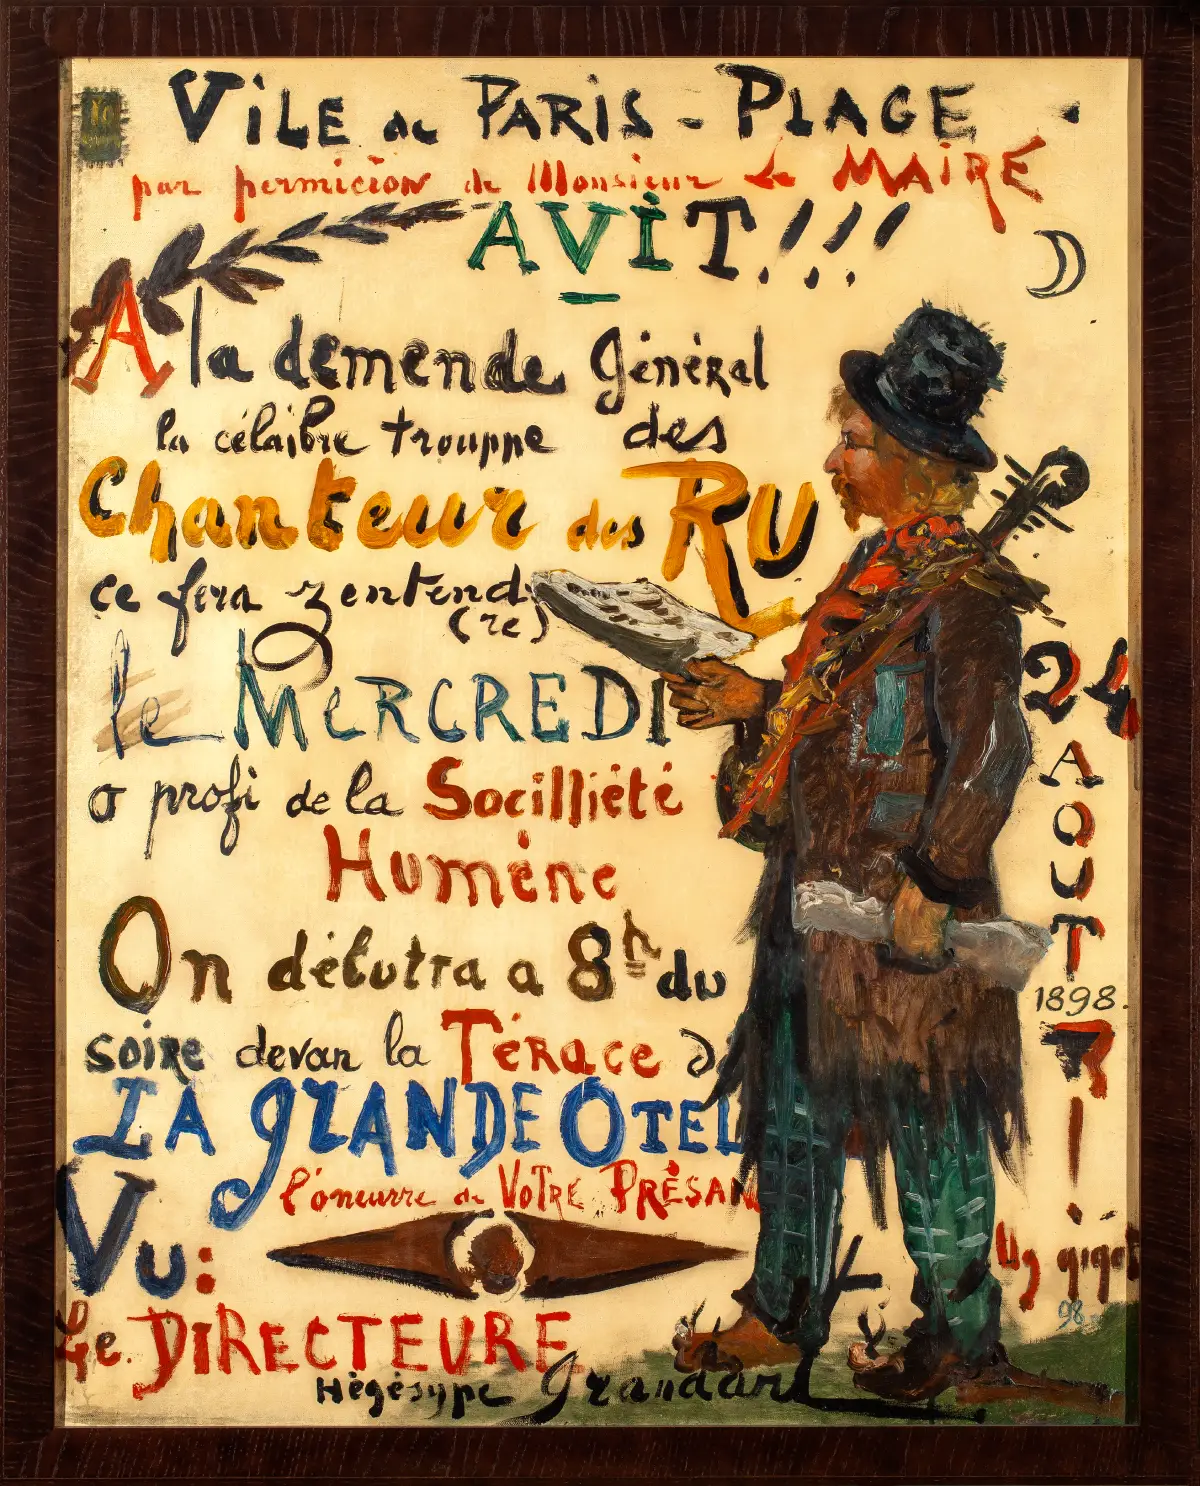 ViLE de PARiS - PLAGE
par permiciōn de Monsieur Le MAiRE
AViT!!!
A la demende Général
la célaibre trouppe des
Chanteur des RU
ce fera zentend
(re)
le MERCREDI
24
AOUT
1898.
o profi de la Socilliété
Humène
On débutra a 8h du
soire devan la TÉRace de
LA gRANDE OTEL
l'oneurre de VOTRE PRÉSAN
Vu:
Le DiRECTEURE
Hégésype Grandart
98